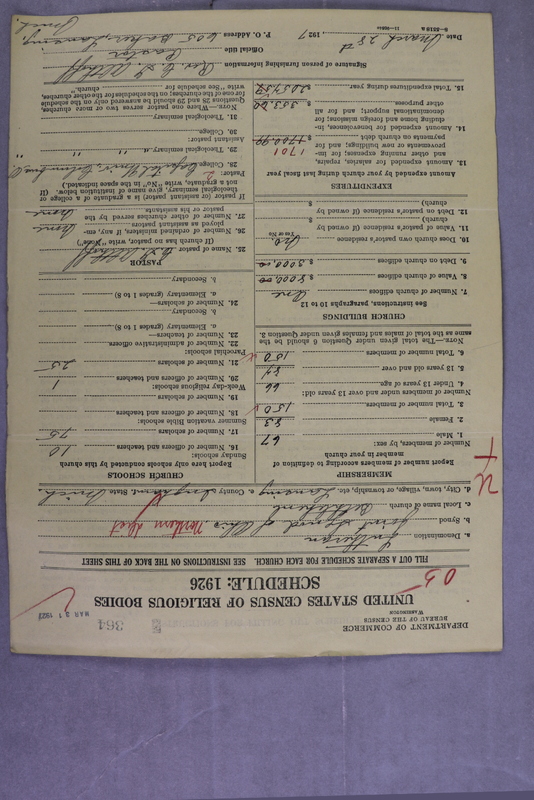 DEPARTMENT OF COMMERCE
BUREAU OF THE CENSUS
WASHINGTON
364
MAR 31 1927
UNITED STATES CENSUS OF RELIGIOUS BODIES
SCHEDULE: 1926
05
FILL OUT A SEPARATE SCHEDULE FOR EACH CHURCH. SEE INSTRUCTIONS ON THE BACK OF THIS SHEET
a. Denomination Lutheran
b. Synod Joint Synod of Ohio Northern Dist
c. Local name of church Bethlehem
d. City, town, village, or township, etc. Lansing e. County Ingham State Mich.
MEMBERSHIP
Report number of members according to definition of
member in your church
Number of members, by sex:
1. Male 67
2. Female 83
3. Total number of members 150
Number of members under and over 13 years old:
4. Under 13 years of age 66
5. 13 years old and over 84
6. Total number of members 150
NOTE.—The total given under Question 6 should be the
same as the total of males and females given under Question 3.
CHURCH BUILDINGS
See instructions, paragraphs 10 to 12
7. Number of church edifices One
8. Value of church edifices $ 8000.00
9. Debt on church edifices $ 3000.00
10. Does church own pastor's residence No
Yes or No
11. Value of pastor's residence (if owned by
church) $
12. Debt on pastor's residence (if owned by
church) $
EXPENDITURES
Amount expended by your church during last fiscal year
13. Amount expended for salaries, repairs,
and other running expenses; for im-
provements or new buildings; and for
payments on church debt $ 1700.99 1701
14. Amount expended for benevolences, in-
cluding home and foreign missions; for
denominational support; and for all
other purposes $ 353.00
15. Total expenditures during year $
CHURCH SCHOOLS
Report here only schools conducted by this church
Sunday schools:
16. Number of officers and teachers 10
17. Number of scholars 75
Summer vacation Bible schools:
18. Number of officers and teachers
19. Number of scholars
Week-day religious schools:
20. Number of officers and teachers 1
21. Number of scholars 25
Parochial schools:
22. Number of administrative officers
23. Number of teachers—
a. Elementary (grades 1 to 8)
b. Secondary
24. Number of scholars—
a. Elementary (grades 1 to 8)
b. Secondary
PASTOR
25. Name of pastor
(If church has no pastor, write "None")
26. Number of ordained ministers, if any, em-
ployed as assistant pastors None
27. Number of other churches served by the
pastor or his assistants None
If pastor (or assistant pastor) is a graduate of a college or
theological seminary, give name of institution below. (If
not a graduate, write "No" in the space indicated.)
Pastor: 2
28. College Capital Univ. Columbus O
29. Theological seminary " " "
Assistant pastor:
30. College
31. Theological seminary
NOTE.—Where one pastor serves two or more churches,
Questions 28 and 29 should be answered only on the schedule
for one of the churches; on the schedules for the other churches,
write "See schedule for church."
Signature of person furnishing information
Official title Pastor
Date March 28th 1927 P. O. Address 605 Baker, Lansing, Mich.